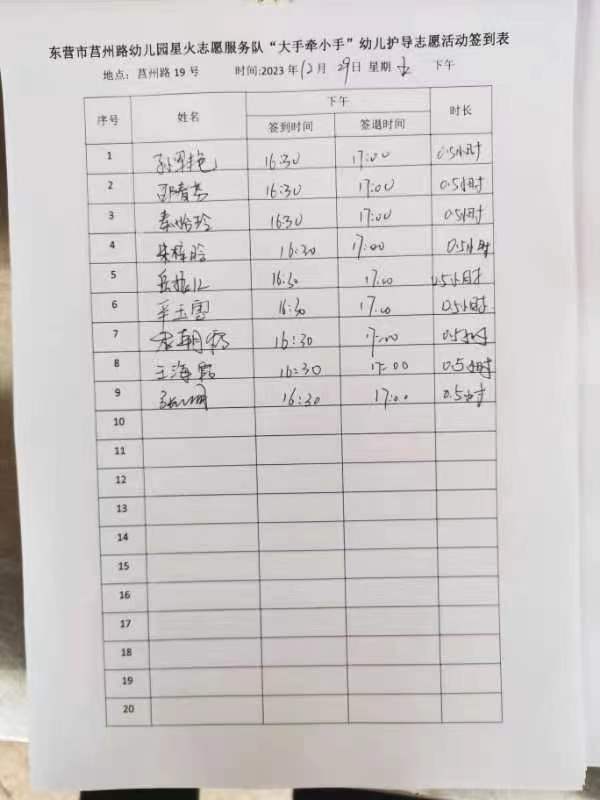 东营市莒州路幼儿园星火志愿服务队“大手牵小手”幼儿护导志愿活动签到表
地点：莒州路 19 号 时间:2023 年 12 月 29 日 星期 五 下午
序号 姓名 下午 时长
签到时间 签退时间
1 16:30 17:00 0.5小时
2 16:30 17:00 0.5小时
3 1630 17:00 0.5小时
4 16:30 17:00 0.5小时
5 16:30 17:00 0.5小时
6 辛玉雪 16:30 17:00 0.5小时
7 16:30 17:00 0.5小时
8 王海霞 16:30 17:00 0.5小时
9 16:30 17:00 0.5小时
10
11
12
13
14
15
16
17
18
19
20